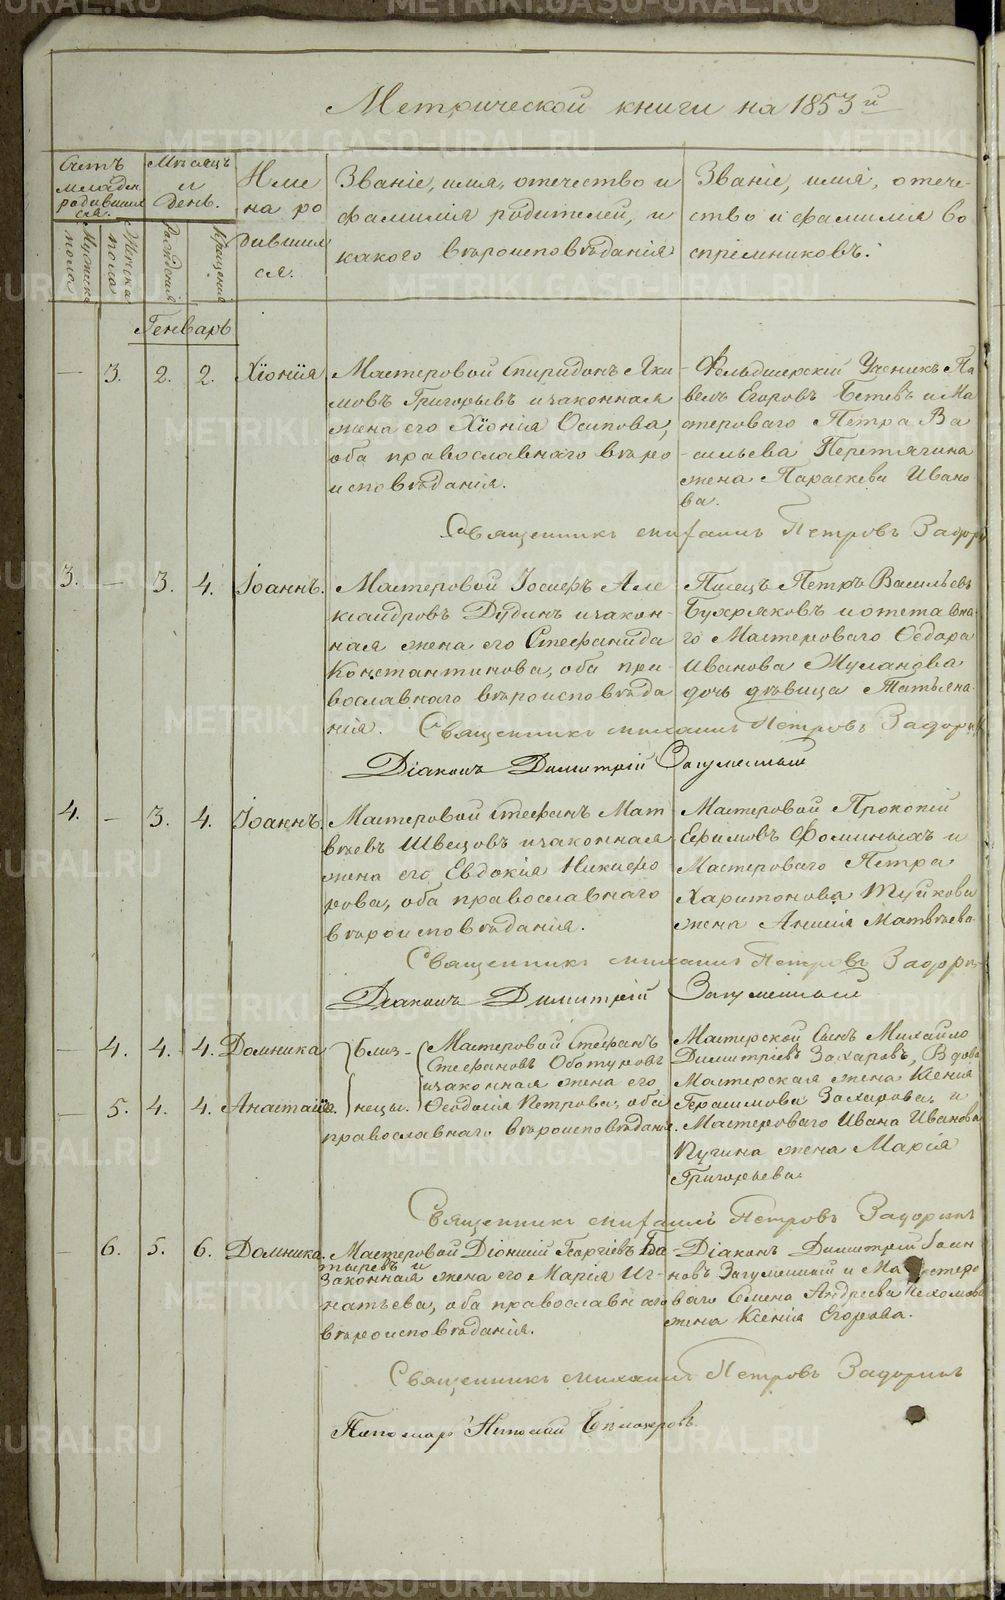 Метрической книги на 1853й
Счетъ младен родившихся.
Мужска пола
Женска пола
Мѣсяцъ и день.
Рожденія
Крещенія
Име на родившихся.
Званіе, имя, отечество и
фамилія родителей, и
какого вѣроисповѣданія
Званіе, имя, отече-
ство и фамилія во
спріемниковъ.
Генварь
— 3. 2. 2. Хіонія
Мастеровой Спиридонъ Яки
мовъ Григорьевъ изаконная
жена его Хіонія Осипова,
оба православнаго вѣро
исповѣданія.
Фельдшерскій Ученикъ Па
велъ Егоровъ Бетевъ и Ма
стероваго Петра Ва
сильева Перетягина
жена Параскева Ивано
ва.
Священникъ Михаилъ Петровъ Задор
3. — 3. 4. Іоаннъ.
Мастеровой Іосифъ Але
ксандровъ Дудинъ изакон-
ная жена его Стефанида
Константинова, оба пра
вославнаго вѣроисповѣда
нія.
Писецъ Петръ Васильевъ
Бухряковъ и отставна
го Мастероваго Ѳедора
Иванова Муланова
дочь дѣвица Татьяна
Священникъ Михаилъ Петровъ Задор
Діаконъ Димитрій Загуменный
4. — 3. 4. Іоаннъ.
Мастеровой Стефанъ Мат
вѣевъ Швецовъ изаконная
жена его Евдокія Никифо
рова, оба православнаго
вѣроисповѣданія.
Мастеровой Прокопій
Ефимовъ Фоминыхъ и
Мастероваго Петра
Харитонова Туйкова
жена Анисія Матвѣева
Священникъ Михаилъ Петровъ Задорин
Діаконъ Димитрій Загуменный
— 4. 4. 4. Домника
— 5. 4. 4. Анастасія.
Близ-
нецы.
Мастеровой Стефанъ
Стефановъ Оботуровъ
изаконная жена его
Ѳеодосія Петрова, оба
православнаго вѣроисповѣданія.
Мастерской Сынъ Михайло
Димитріевъ Захаровъ, Вдова
Мастерская жена Ксенія
Герасимова Захарова, и
Мастероваго Ивана Иванова
Пугина жена Марія
Григорьева.
Священникъ Михаилъ Петровъ Задоринъ
— 6. 5. 6. Домника.
Мастеровой Діонисій Георгіевъ Ба
тыревъ и
законная жена его Марія Иг-
натьева, оба православнаго
вѣроисповѣданія.
Діаконъ Димитрій Іоан
новъ Загуменный и Мастеро
ваго Семена Андреева
жена Ксенія Егорова.
Священникъ Михаилъ Петровъ Задоринъ
Пономарь Николай
METRIKI.GASO-URAL.RU